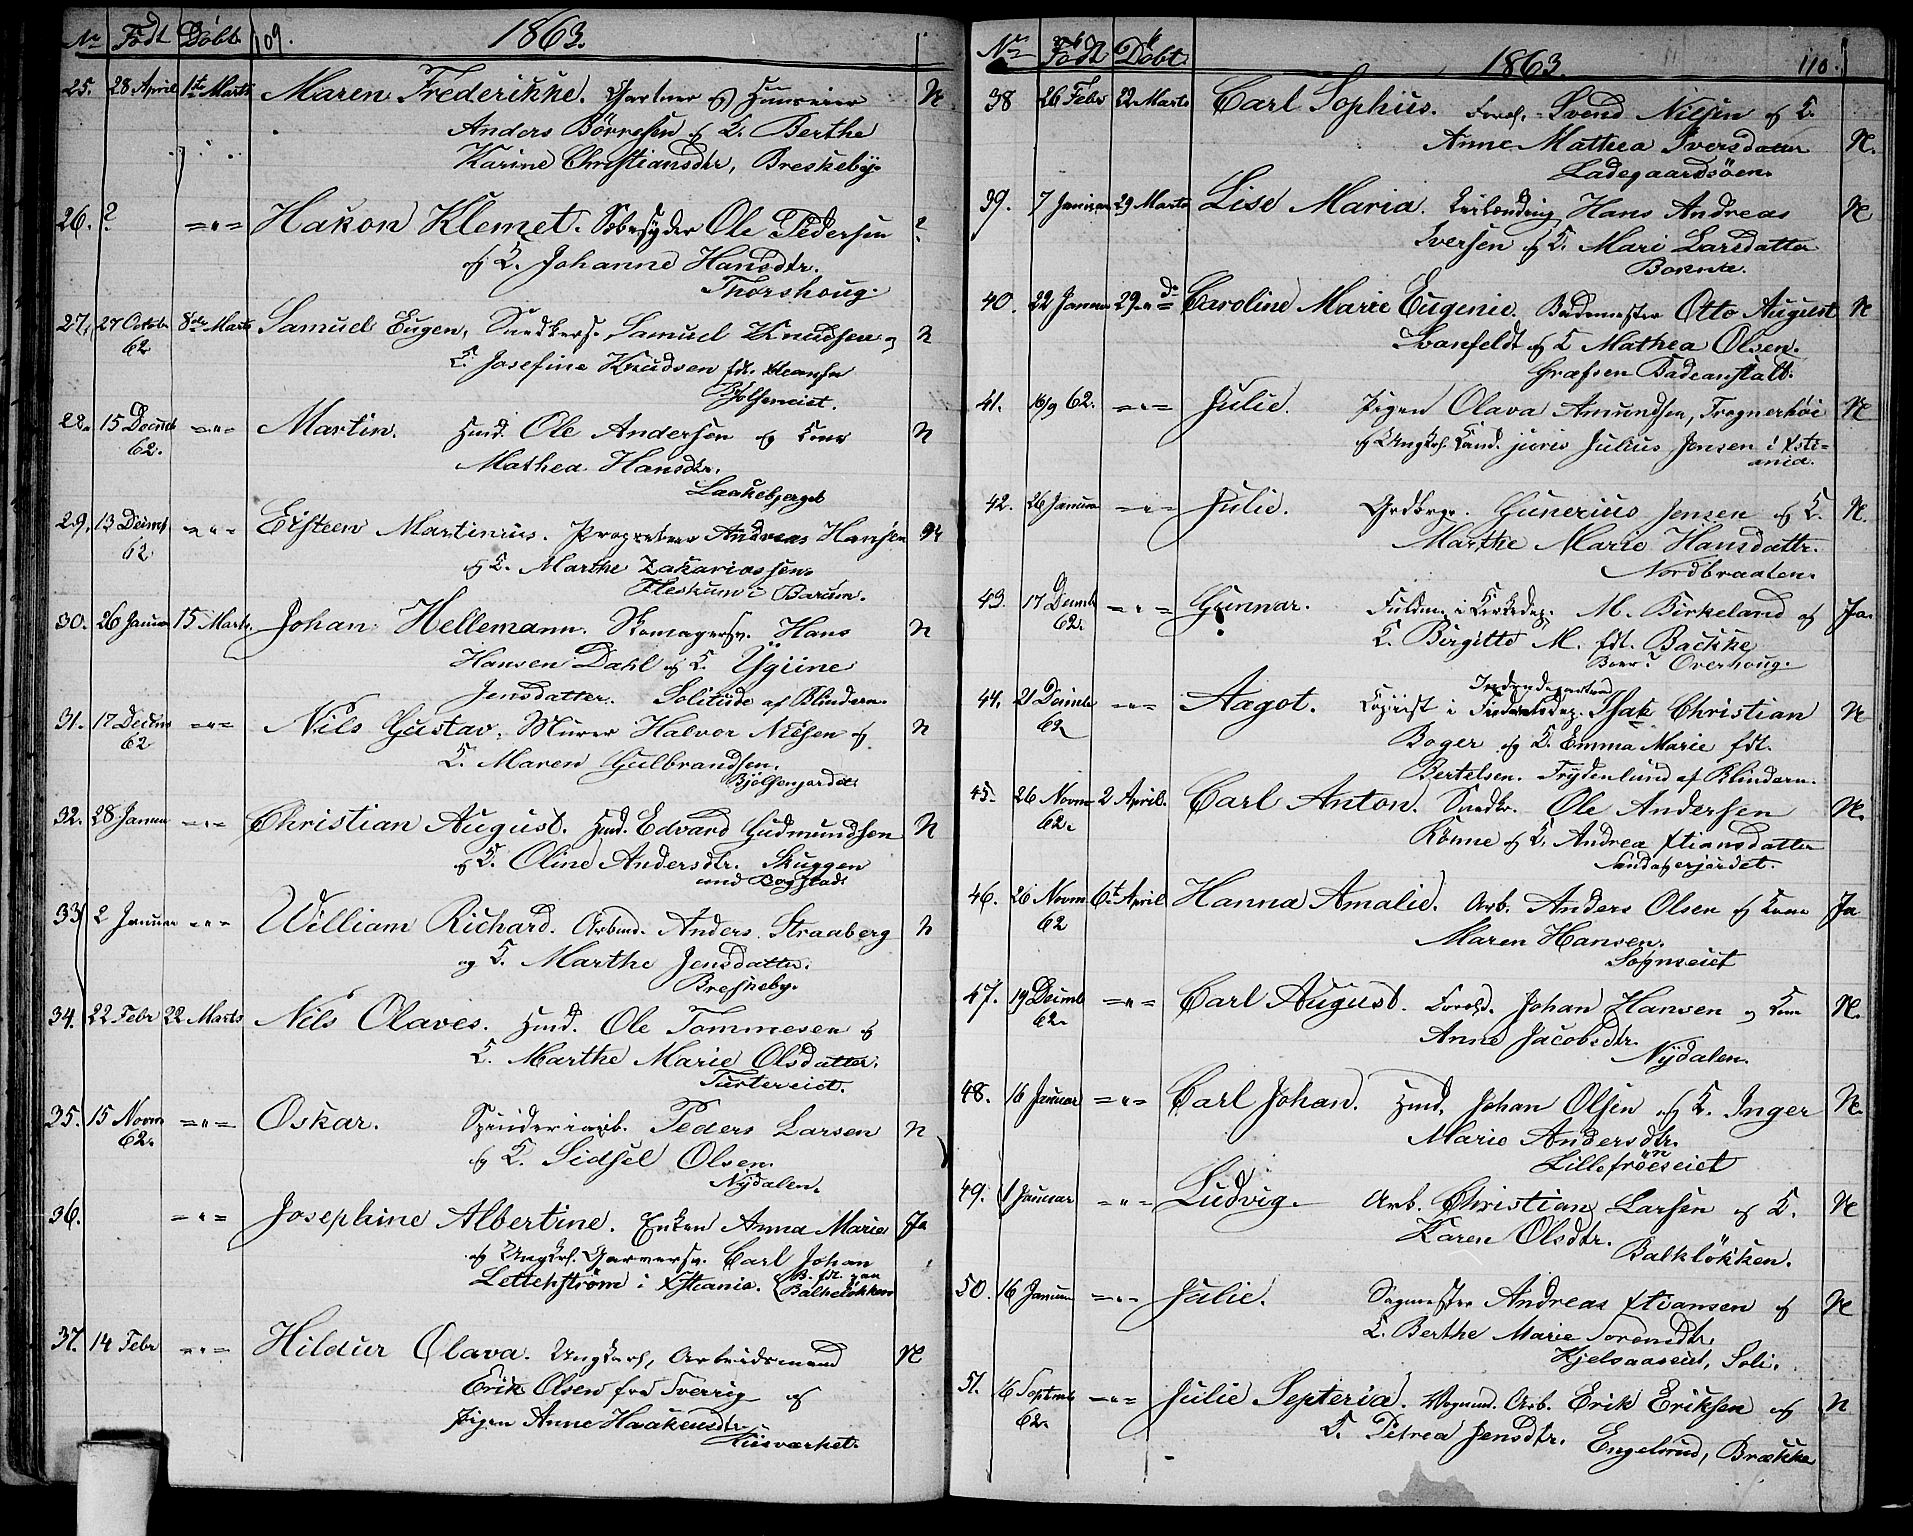 No Født Døbt 109. 1863.
25. 28 April 1ste Marts Maren Frederikke. Gartner og Huuseier N
Anders Børresen og K. Berthe
Karine Christiansdtr, Breskeby.
26. ? =„= Hakon Klemet. Ole Pedersen ?
og K. Johanne Hansdtr.
Thorshoug.
27. 27 Octobr 8de Marts Samuel Eugen, Snedkers. Samuel Knudsen og N
62 K. Josefine Knudsen fdt.
Bjølseneiet.
28. 15 Decemb =„= Martin. Huusd. Ole Andersen og Kone N
62. Mathea Hansdtr.
Laakebjerget
29. 13 Decemb =„= Eisteen Martinius. Proprietær Andreas Hansen N
62 og K. Marthe Zakariassen.
Fleskum i Bærum.
30. 26 Januar 15 Marts. Johan Hellemann. Skomagersv. Hans N
Hansen Dahl og K. Ygiine
Jensdatter. Solitude af Blindern.
31. 17 Decbr =„= Nils Gustav. Murer Halvor Nilsen og N
62 K. Maren Gulbrandsen.
Bjølsenjordet
32. 28 Januar =„= Christian August. Huusd. Edvard Gudmundsen N
og K. Oline Andersdtr. Skuggen
und Bogstad.
33 2 Januar =„= William Richard. Arbmd. Anders Straaberg N
og K. Marthe Jensdatter.
Breskeby.
34. 22 Febr 22 Marts Nils Olaves. Huusd. Ole Tommesen og
K. Marthe Marie Olsdatter.
Turtereiet.
35. 15 Novm =„= Oskar. Spinderiarb. Peders Larsen N
62. og K. Sidsel Olsen.
Nydalen.
36. =„= Josephine Albertine. Enken Anna Marie Ja
og Ungkrl. Garversv. Carl Johan
Letterstrøm i Xstiania. (B. fdt. paa
Balkeløkken
37. 14 Febr =„= Hildur Olava. Ungkarl, Arbeidsmand N
Erik Olsen fra Sverrig og
Pigen Anne Haakensdtr.
Kiisværket.
No Født Døbt. 1863. 110.
38 26 Febr 22 Marts Carl Sophus. Forp. Svend Nilsen og K.
Anne Mathea Iversdatter N.
Ladegaardsøen.
39. 7 Januar 29 Marts Lise Maria. Hans Andreas N
Iversen og K. Mari Larsdatter
40. 22 Januar 29 „ do Caroline Marie Eugenie. Bademester Otto August N
Svanfeldt og K Mathea Olsen.
Græfsen Badeanstalt.
41. 16/9 62. =„= Julie. Pigen Olava Amundsen, Frognerhøi N
og Ungkrl. Cand. juris Julius Jensen i Xsti=
ania.
42. 26 Januar =„= Julie. Grdbrgr. Gunerius Jensen og K. N.
Marthe Marie Hansdattr.
Nordbraaten.
43. 17 Decemb =„= Gunnar. Fuldm. i Kirkedep. M. Birkeland og Ja.
62. K. Birgitte M. fdt. Backke
Overhoug.
44. 21 Decemb =„= Aagot. Copiist i Isak Christian N
62 Boger og K. Emma Marie fdt.
Bertelsen. Frydenlund af Blindern.
45. 26 Novm 2 April. Carl Anton. Snedkr. Ole Andersen N.
62. Rønne og K. Andrea Xtiansdatter
Sandagerjordet.
46. 26 Novm 6te April Hanna Amalie. Arb. Anders Olsen og Kone Ja
62 Maren Hansen.
Sogneseiet
47. 19 Decmb =„= Carl August. Johan Hansen og Kone N.
62. Anne Jacobsdtr.
Nydalen.
48. 16 Januar =„= Carl Johan. Huusd. Johan Olsen og K. Inger N.
Marie Andersdtr.
Lillefrøeneiet
49. 1 Januar =„= Ludvig. Arb. Christian Larsen og K. N
Karen Olsdtr.
Balkløkken.
50. 16 Januar =„= Julie. Sagmester Andreas Xtiansen og N
K. Berthe Marie Sorensdtr.
Kjelsaaseiet, Soli.
51. 16 Septemb =„= Julie Septeria. Arb. Erik Eriksen og N
62. K. Petrea Jensdtr. Engelsrud, Brække